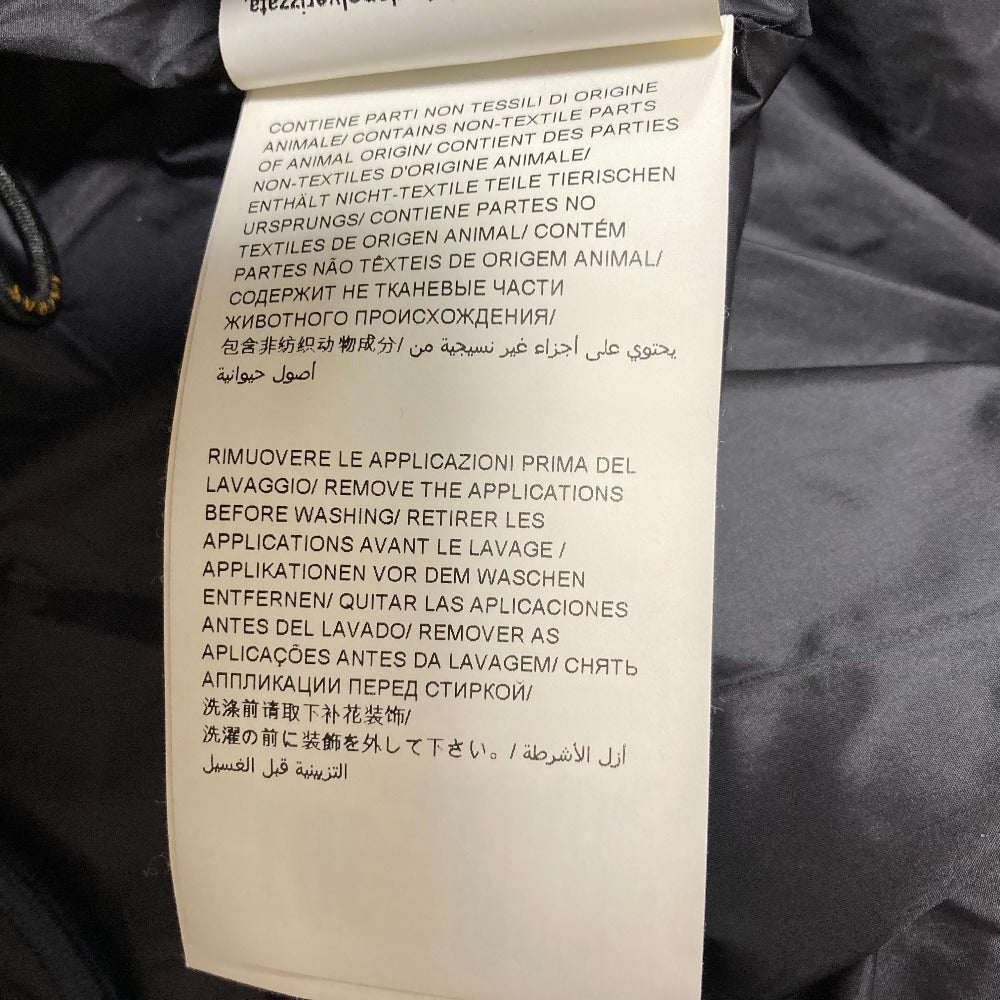 CONTIENE PARTI NON TESSILI DI ORIGINE
ANIMALE/ CONTAINS NON-TEXTILE PARTS
OF ANIMAL ORIGIN/ CONTIENT DES PARTIES
NON-TEXTILES D'ORIGINE ANIMALE/
ENTHÄLT NICHT-TEXTILE TEILE TIERISCHEN
URSPRUNGS/ CONTIENE PARTES NO
TEXTILES DE ORIGEN ANIMAL/ CONTÉM
PARTES NÃO TÊXTEIS DE ORIGEM ANIMAL/
СОДЕРЖИТ НЕ ТКАНЕВЫЕ ЧАСТИ
ЖИВОТНОГО ПРОИСХОЖДЕНИЯ/
包含非纺织动物成分/ يحتوي على أجزاء غير نسيجية من
أصول حيوانية
RIMUOVERE LE APPLICAZIONI PRIMA DEL
LAVAGGIO/ REMOVE THE APPLICATIONS
BEFORE WASHING/ RETIRER LES
APPLICATIONS AVANT LE LAVAGE /
APPLIKATIONEN VOR DEM WASCHEN
ENTFERNEN/ QUITAR LAS APLICACIONES
ANTES DEL LAVADO/ REMOVER AS
APLICAÇÕES ANTES DA LAVAGEM/ СНЯТЬ
АППЛИКАЦИИ ПЕРЕД СТИРКОЙ/
洗涤前请取下补花装饰/
洗濯の前に装飾を外して下さい。/ أزل الأشرطة
التزيينية قبل الغسيل